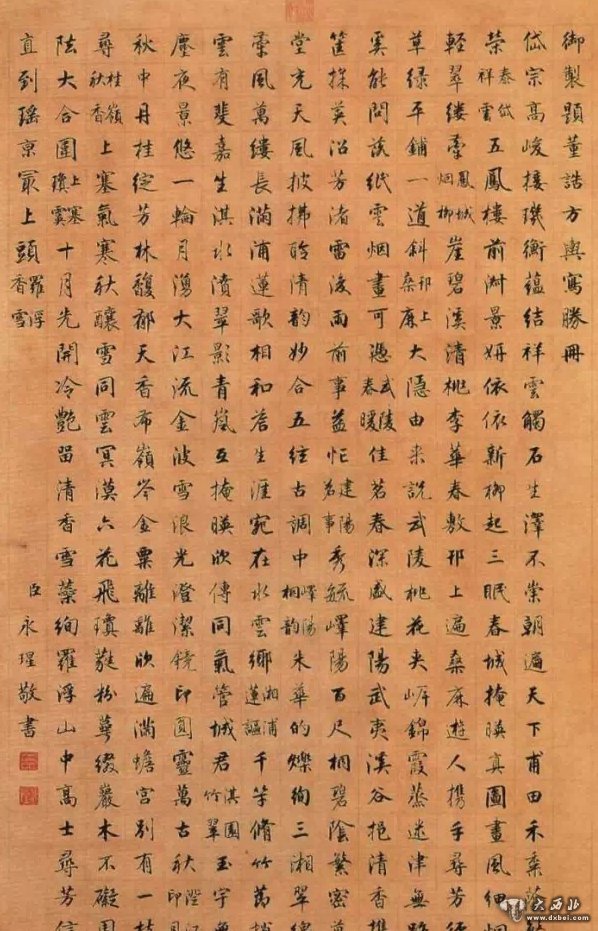 御製題董誥方輿寫勝冊
岱宗高峻接璣衡蘊結祥雲觸石生澤不崇朝遍天下甫田禾黍
榮泰岱祥雲五鳳樓前淑景妍依依新柳起三眠春城掩映真圖畫風細烟
輕翠縷牽鳳城烟柳崖碧溪清桃李華春敷邗上遍桑麻遊人攜手尋芳徑
草綠平鋪一道斜邗上桑麻大隱由來說武陵桃花夾岸錦霞蒸迷津無路
奚能問紙雲烟畫可憑武陵春暖佳茗春深盛建陽武夷溪谷挹清香攜
筐採英沿芳渚雷後雨前事益忙建陽茗事秀毓嶧陽百尺桐碧陰繁密
堂充天風披拂聆清韵妙合五絃古調中嶧陽桐韵朱華的爍絢三湘翠
風萬縷長滿浦蓮歌相和答生涯宛在水雲鄉湘浦蓮謳千竿脩竹萬
雲有斐嘉生淇水濆翠影青嵐互掩映欣傳同氣管城君淇園竹翠玉宇無
塵夜景悠一輪月湧大江流金波雪浪光澄潔鏡印圓靈萬古秋澄江秋印
秋中丹桂綻芳林馥郁天香布嶺岑金粟離離欣遍滿蟾宮別有一枝
尋桂嶺秋香上塞氣寒秋釀雪同雲冥漠六花飛瓊蕤粉萼綴巖木不礙周
阹大合圍上塞瓊霙十月先開冷艷留清香雪蘂絢羅浮山中高士尋芳信
直到瑤京最上頭羅浮香雪
臣永瑆敬書
大西北
www.dxbei.com